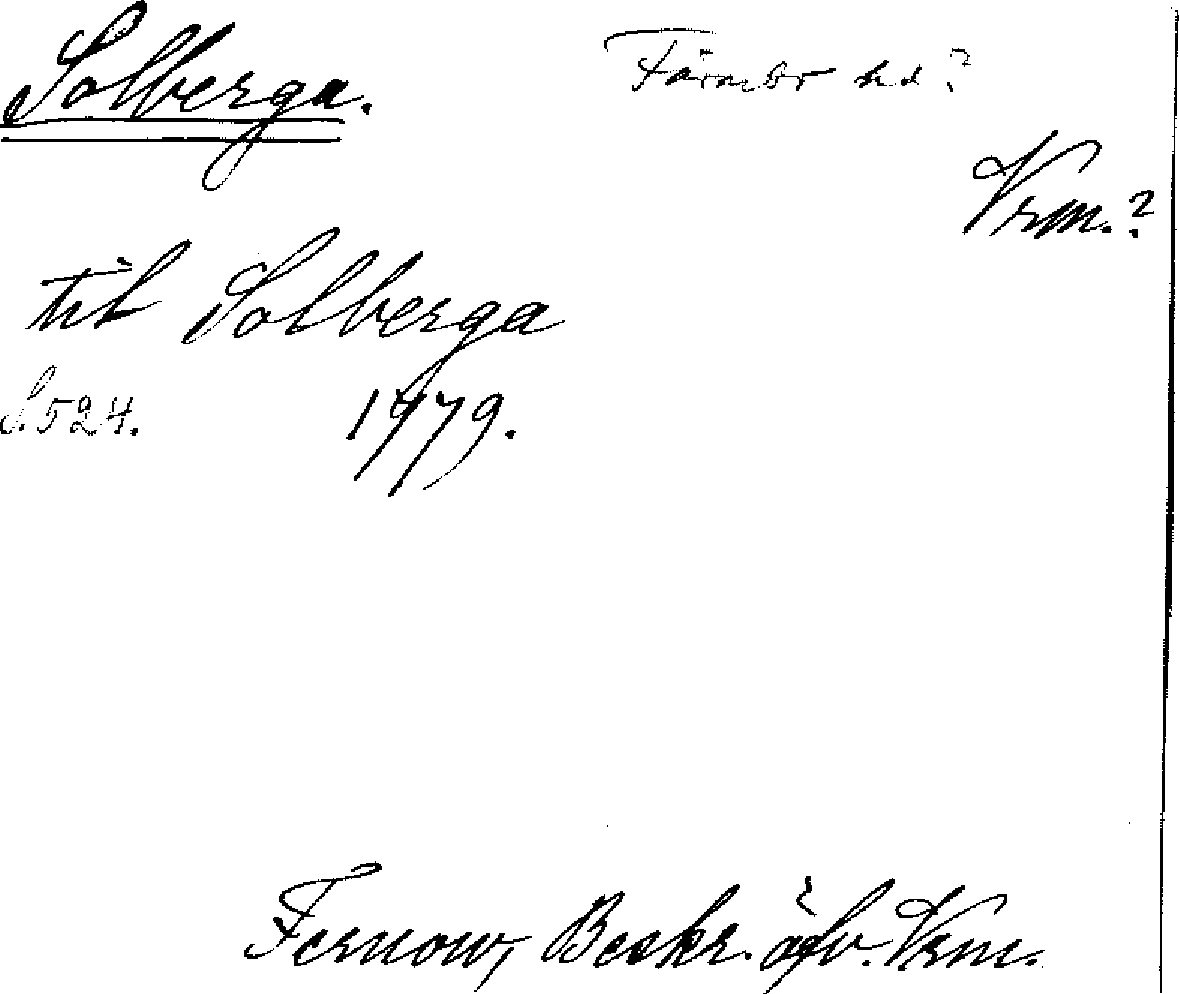 Solberga.
Färnebo hd?
Vrm.?
til Solberga
S. 524.
1779.
Fernow, Beskr. öfv. Vrm.